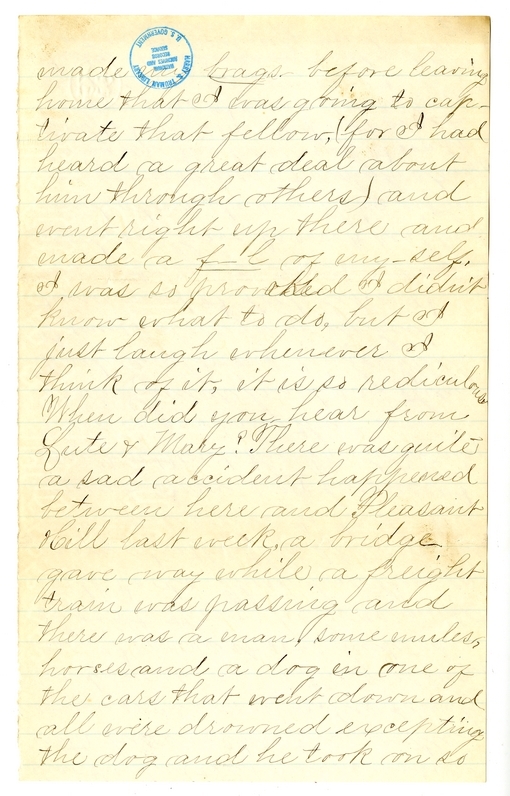 HARRY S. TRUMAN LIBRARY
NATIONAL ARCHIVES AND RECORDS SERVICE
U. S. GOVERNMENT
made brags before leaving
home that I was going to cap-
tivate that fellow, (for I had
heard a great deal about
him through others) and
went right up there and
made a f—l of my-self.
I was so provoked I didn't
know what to do, but I
just laugh whenever I
think of it, it is so rediculous
When did you hear from
Lute & Mary? There was quite
a sad accident happened
between here and Pleasant
Hill last week, a bridge
gave way while a freight
train was passing and
there was a man, some mules,
horses and a dog in one of
the cars that went down and
all were drowned excepting
the dog and he took on so